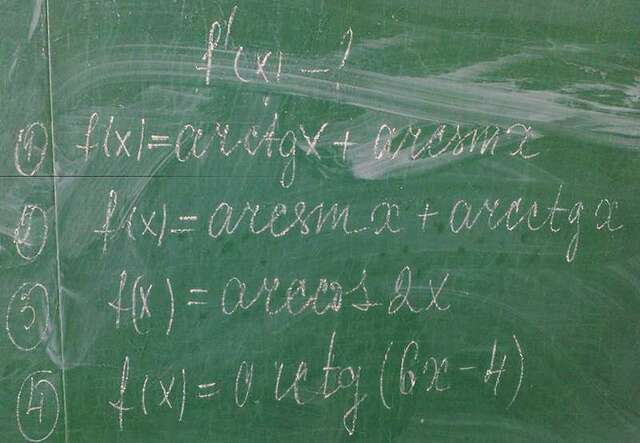 f'(x) - ?
① f(x) = arctgx + arcsinx
② f(x) = arcsin x + arcctg x
③ f(x) = arccos 2x
④ f(x) = arctg (6x - 4)